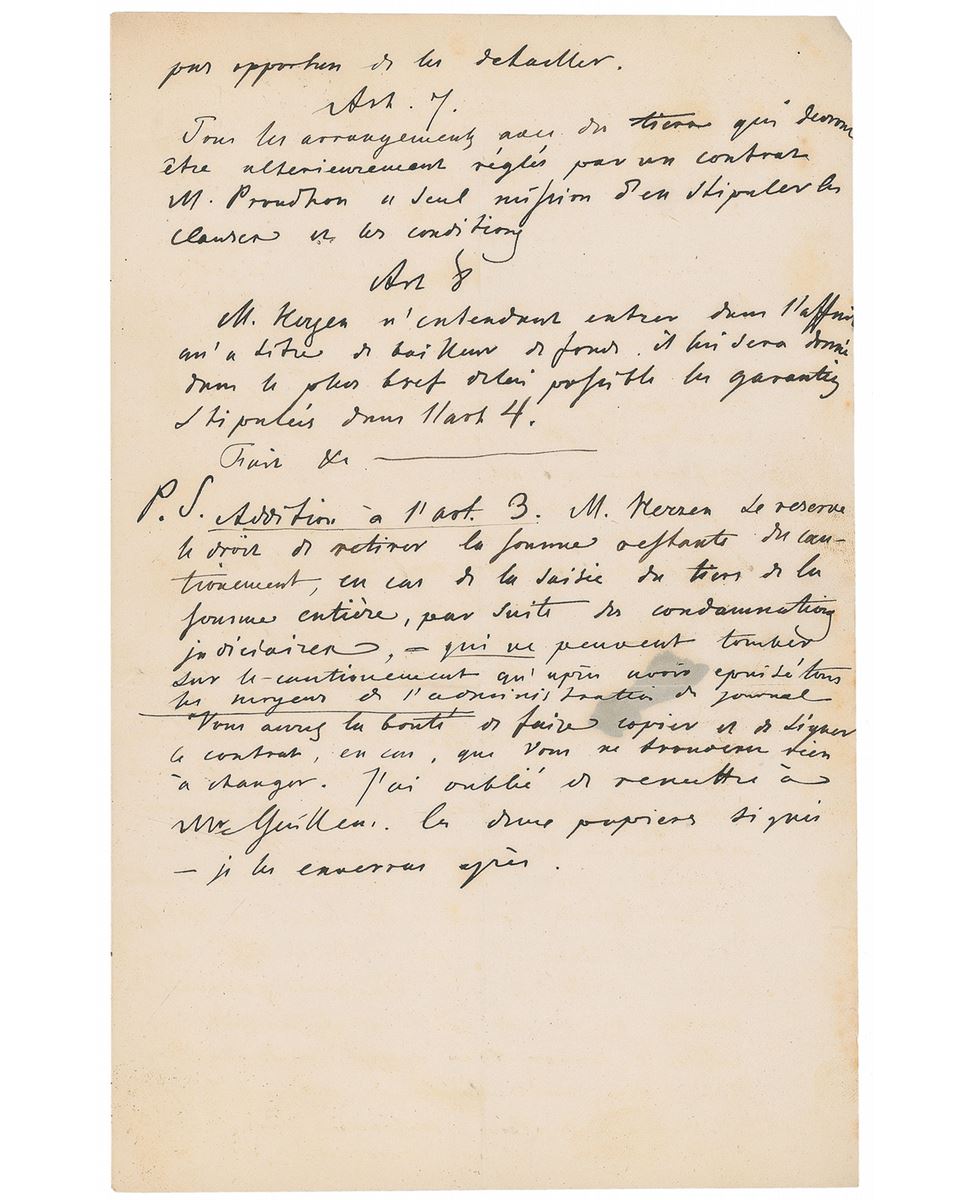 pas opportun de les detailler.
Art. 7.
Tous les arrangements avec des tiers qui devront
être ulterieurement réglés par un contrat
M. Proudhon a seul mission d'en stipuler les
clauses et les conditions
Art 8
M. Herzen n'entendant entrer dans l'affaire
qu'a titre de bailleur de fonds. il lui sera donné
dans le plus bref delai possible les garanties
stipulées dans l'art 4.
Fait &c
P.S. Addition à l'art. 3. M. Herzen se reserve
le droit de retirer la somme restante du cau-
tionement, en cas de la saisie du tiers de la
somme entière, par suite des condamnations
judiciaires, – qui ne peuvent tomber
sur le cautionement qu'après avoir epuisé tous
les moyens de l'administration du journal
Vous aurez la bonté de faire copier et de signer
le contrat, en cas, que vous ne trouverez rien
à changer. J'ai oublié de remettre à
Mr Guillem. les deux papiers signés
– je les enverrai après.